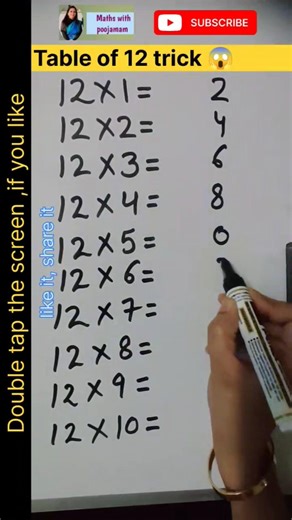 Maths with
poojamam
SUBSCRIBE
Table of 12 trick 😱
12×1= 2
12×2= 4
12×3= 6
12×4= 8
12×5= 0
12×6=
12×7=
12×8=
12×9=
12×10=
Double tap the screen ,if you like
like it, share it